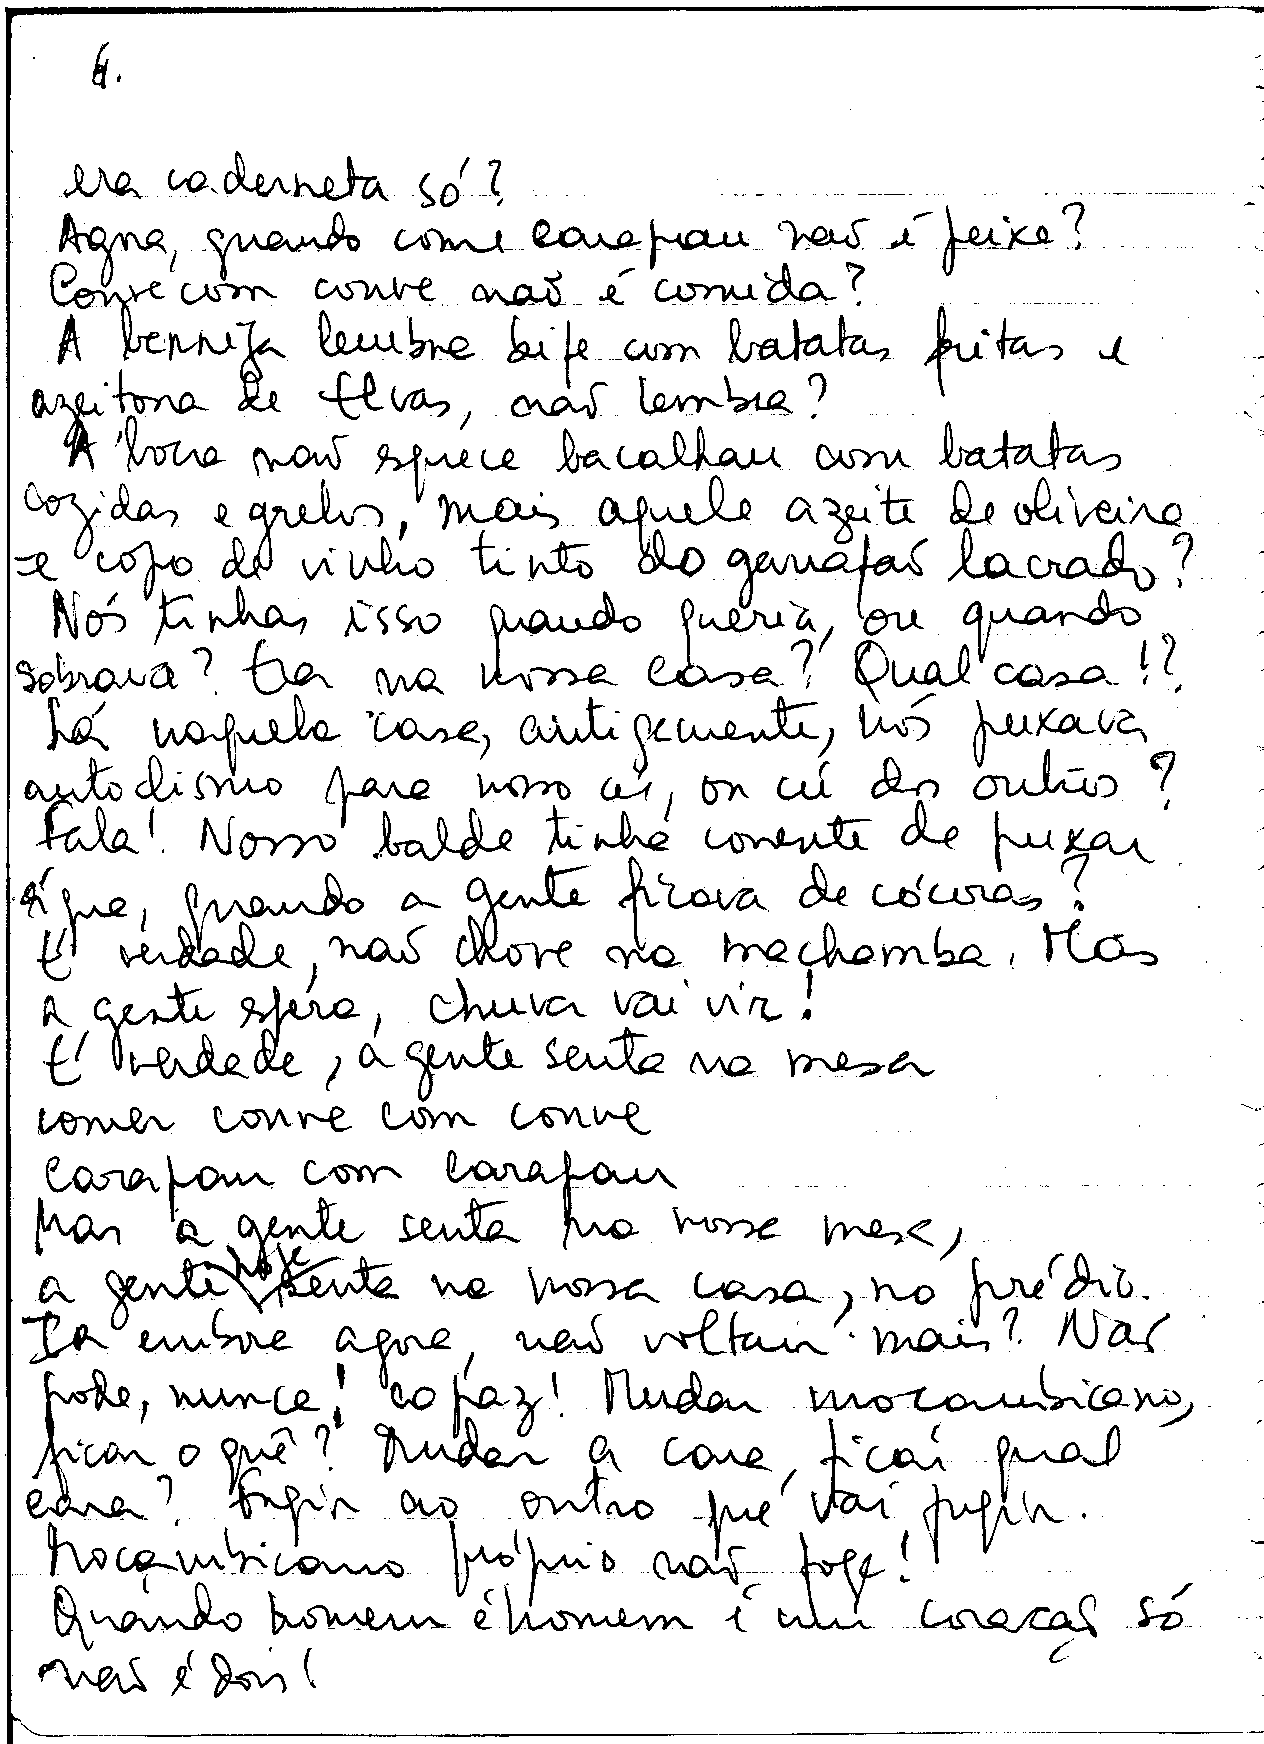 4.
era caderneta só?
Agora, quando come carapau não é peixe?
Couve com couve não é comida?
A barriga lembra bife com batatas fritas e
azeitona de Elvas, não lembra?
A boca não esquece bacalhau com batatas
cozidas e grelos, mais aquele azeite de oliveira
e copo de vinho tinto do garrafão lacrado?
Nós tinhas isso quando queria, ou quando
sobrava? Era na nossa casa? Qual casa!?
Lá naquela casa, antigamente, nós puxava
autoclismo para nosso cú, ou cú dos outros?
Fala! Nosso balde tinha corrente de puxar
água, quando a gente ficava de cócoras?
É verdade, não chove na machamba. Mas
a gente espera, chuva vai vir!
É verdade, a gente senta na mesa
comer couve com couve
carapau com carapau
mas a gente senta na nossa mesa,
a gente hoje senta na nossa casa, no prédio.
Ir embora agora, não voltar mais? Não
pode, nunca! capaz! Mudar moçambicano,
ficar o quê? Mudar a cara, ficar qual
cara? Fugir ao outro que vai fugir.
Moçambicano próprio não foge!
Quando homem é homem é um coração só
não é dois!